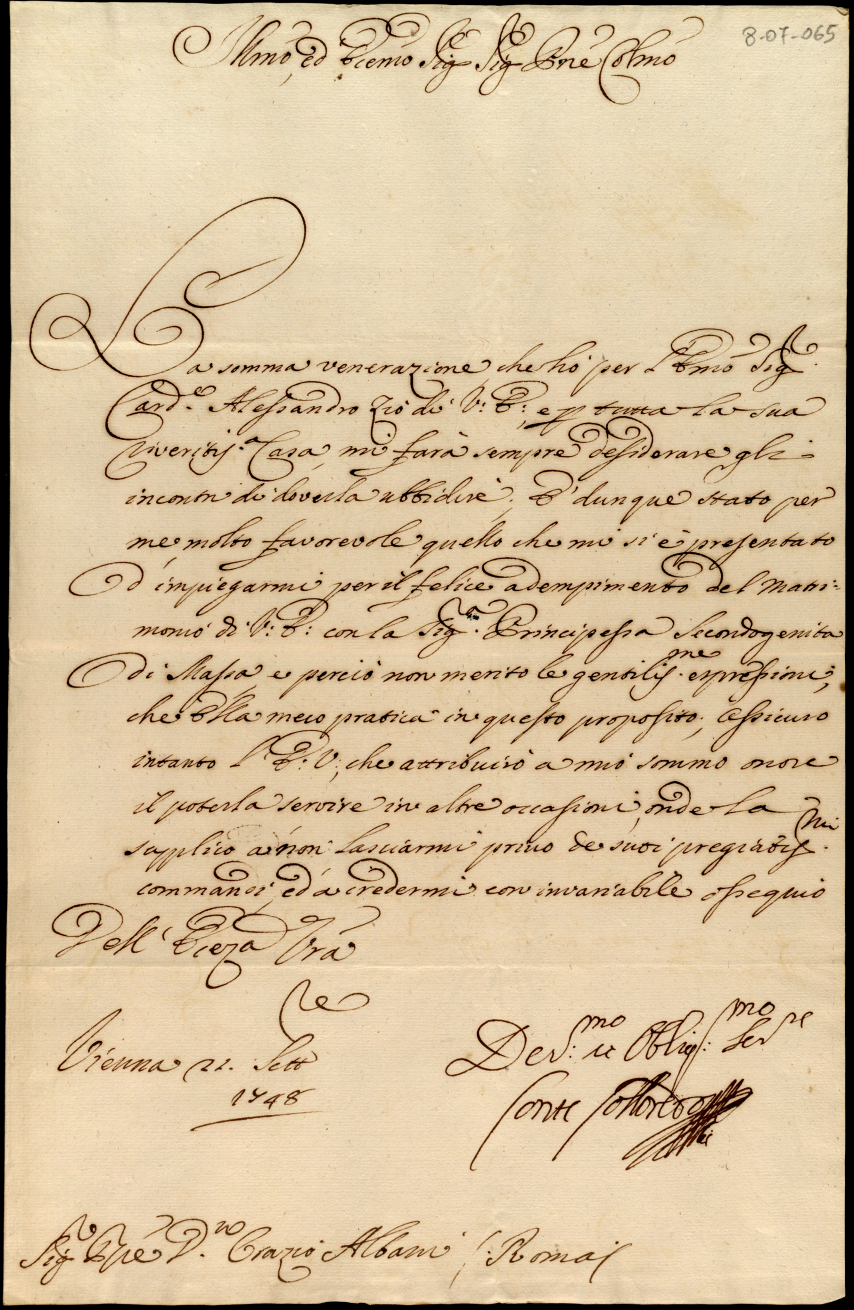 8-07-065
Illmo, ed Eccmo Sig Sig Pne Colmo
La somma venerazione che hò per l'Emo Sig.
Card.e Alessandro Zio di V: E:, e p tutta la sua
riveritis.a Casa, mi farà sempre desiderare gli
incontri di doverla ubbidire; E' dunque stato per
me molto favorevole quello che mi si è presentato
d'impiegarmi per il felice adempimento del Matri-
monio di V: E: con la Sig.ra Principessa Secondogenita
di Massa e perciò non merito le gentilis.me espressioni,
che Ella meco pratica in questo proposito; Assicuro
intanto l'E: V:, che attribuirò a mio sommo onore
il poterla servire in altre occasioni, onde la
supplico a non lasciarmi privo de suoi pregiatis.mi
commandi, ed à credermi con invariabile ossequio
Dell' Ecceza Vra
Vienna 22. Sett
1748
Dev:mo et Oblig:mo Serre
Conte Colloredo
Sig Ppe D.n Orazio Albani /: Roma